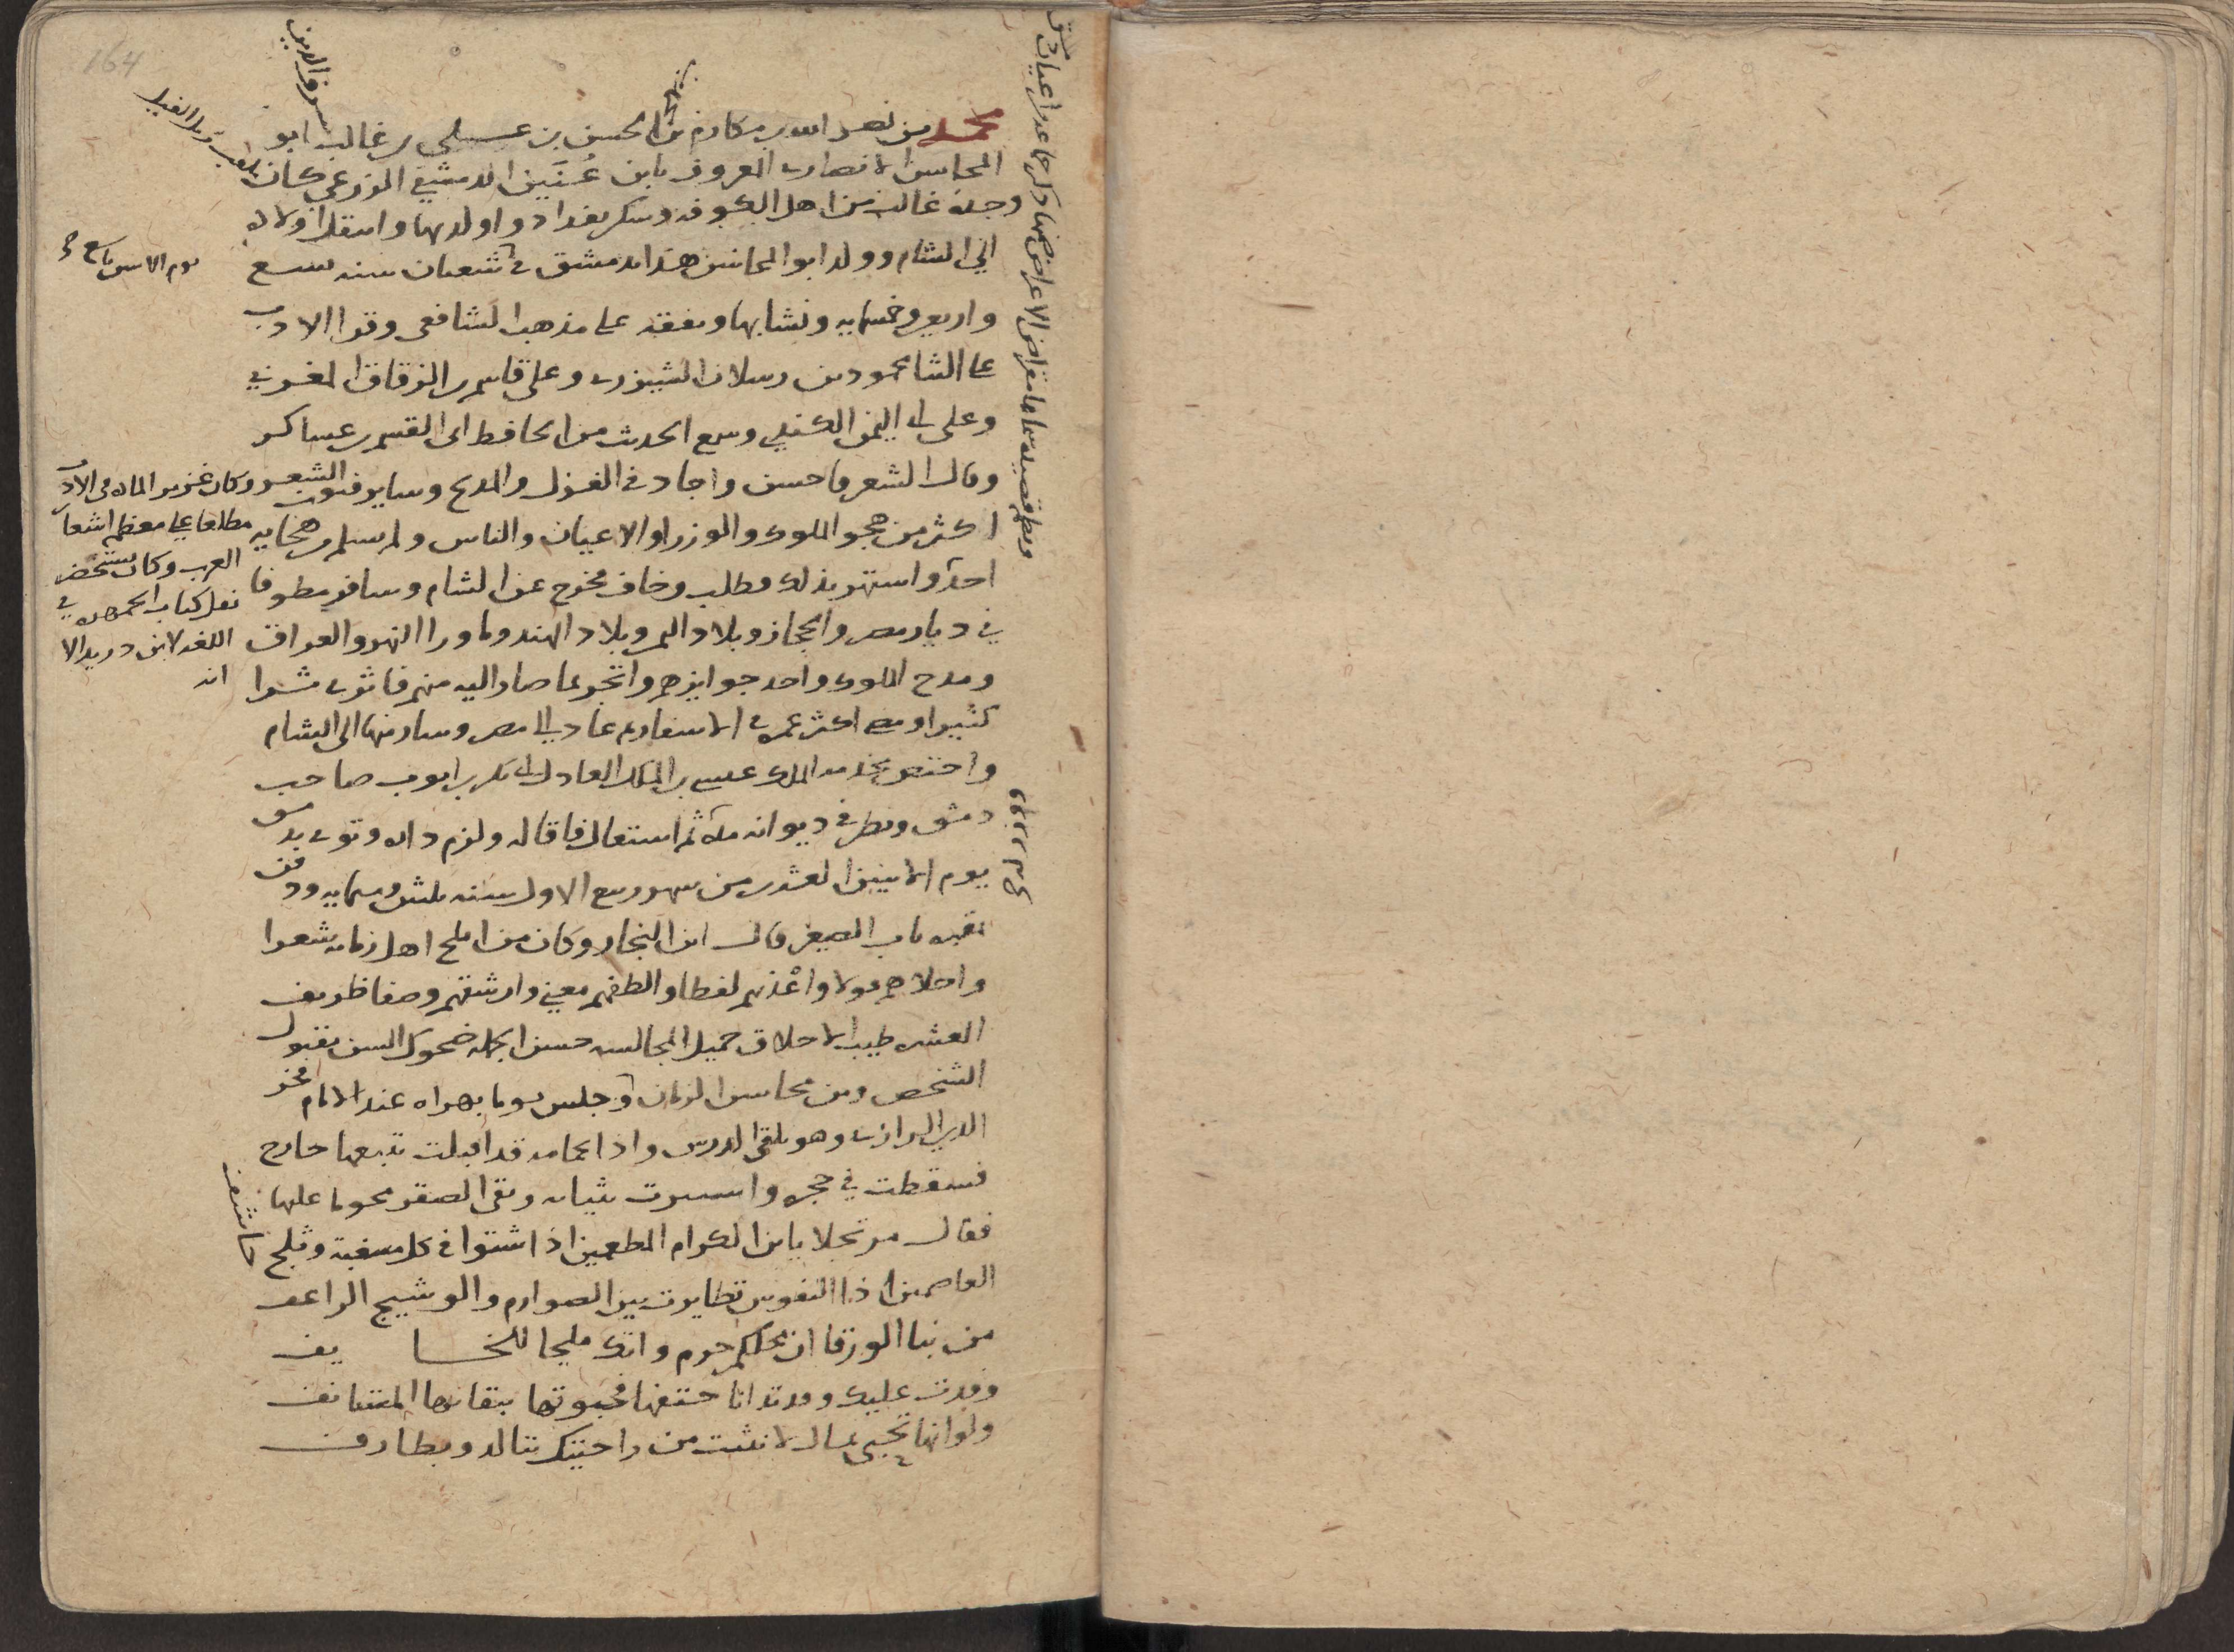 164
شرف الدين
محمد بن نصر الله بن مكارم بن الحسن بن عسلى بن غالب ابو
المحاسن الانصارى المعروف بابن عُنَين الدمشقي الزرعي كان
وجدّه غالب من اهل الكوفه وسكن بغداد واولد بها وانتقل اولاده
الى الشام وولد ابو المحاسن هذا بدمشق في شعبان سنه تسع
يوم الاثنين تاسع
واربعين وخمسمايه ونشا بها وتفقه على مذهب الشافعى وقرا الادب
على الثنا محمود بن رسلان الشيزرى وعلى قاسم الزقاق المغربي
وعلى ابى اليمن الكندي وسمع الحديث من الحافظ ابى القسم بن عساكر
وقال الشعر فاحسن واجاد في الغزل والمدح وساير فنون الشعر
وكان غزير الماده في الادب
اكثر من هجو الملوك والوزرا والاعيان والناس ولم يسلم من هجايه
مطلعا على معظم اشعار
احدٌ واشتهر بذلك فطلب وخاف فخرج عن الشام وسافر مطوفا
العرب وكان يستحضر
نقل كتاب الجمهره في
في ديار مصر والحجاز وبلاد اليمن وبلاد الهند وما ورا النهر والعراق
اللغه لابن دريد الا
ومدح الملوك واخذ جوايزهم واتجر بما صار اليه منهم فاثرى
انه
كثيرا ومضى اكثر عمره في الاسفار ثم عاد الى مصر وسار منها الى الشام
واختص بخدمه الملك عيسى بن الملك العادل ابى بكر بن ايوب صاحب
دمشق ونظر في ديوانه مدّه ثم استقال فاقاله ولزم داره وتوفى بدمشق
يوم الاثنين العشرين من شهر ربيع الاول سنه ثلثين وستمايه ودفن
بمقبره باب الصغير قال ابن النجار وكان من املح اهل زمانه شعرا
واحلاهم قولا واعذبهم لفظا والطفهم معنى وارشقهم وصفا ظريف
العشره طيب الاخلاق جميل المجالسه حسن الجمله ضحوك السن مقبول
الشخص ومن محاسن الزمان وجلس يوما بهراه عند الامام فخر
الدين الرازى وهو يلقى الدرس واذا بحمامه قد اقبلت تتبعها جارح
فسقطت في حجره واستترت بثيابه وبقى الصقر يحوما عليها
فقال مرتجلا يا ابن الكرام المطعمين اذا اشتوا في كل مسغبة وثلج
خاشف
العاصمين اذا النفوس تطايرت بين الصوارم والوشيج الراعف
من نبا الورقا ان محلكم حرم وانك ملجا للخايف
وفدت عليك وقد تدانا حتفها فحبوتها ببقائها المستانف
ولو انها تحبى بمال لانثنت من راحتيك بتالد وبطارف
ونظم قصيده سماها مقراض الاعراض ضمنها ذكر جماعه من اعيان دمشق